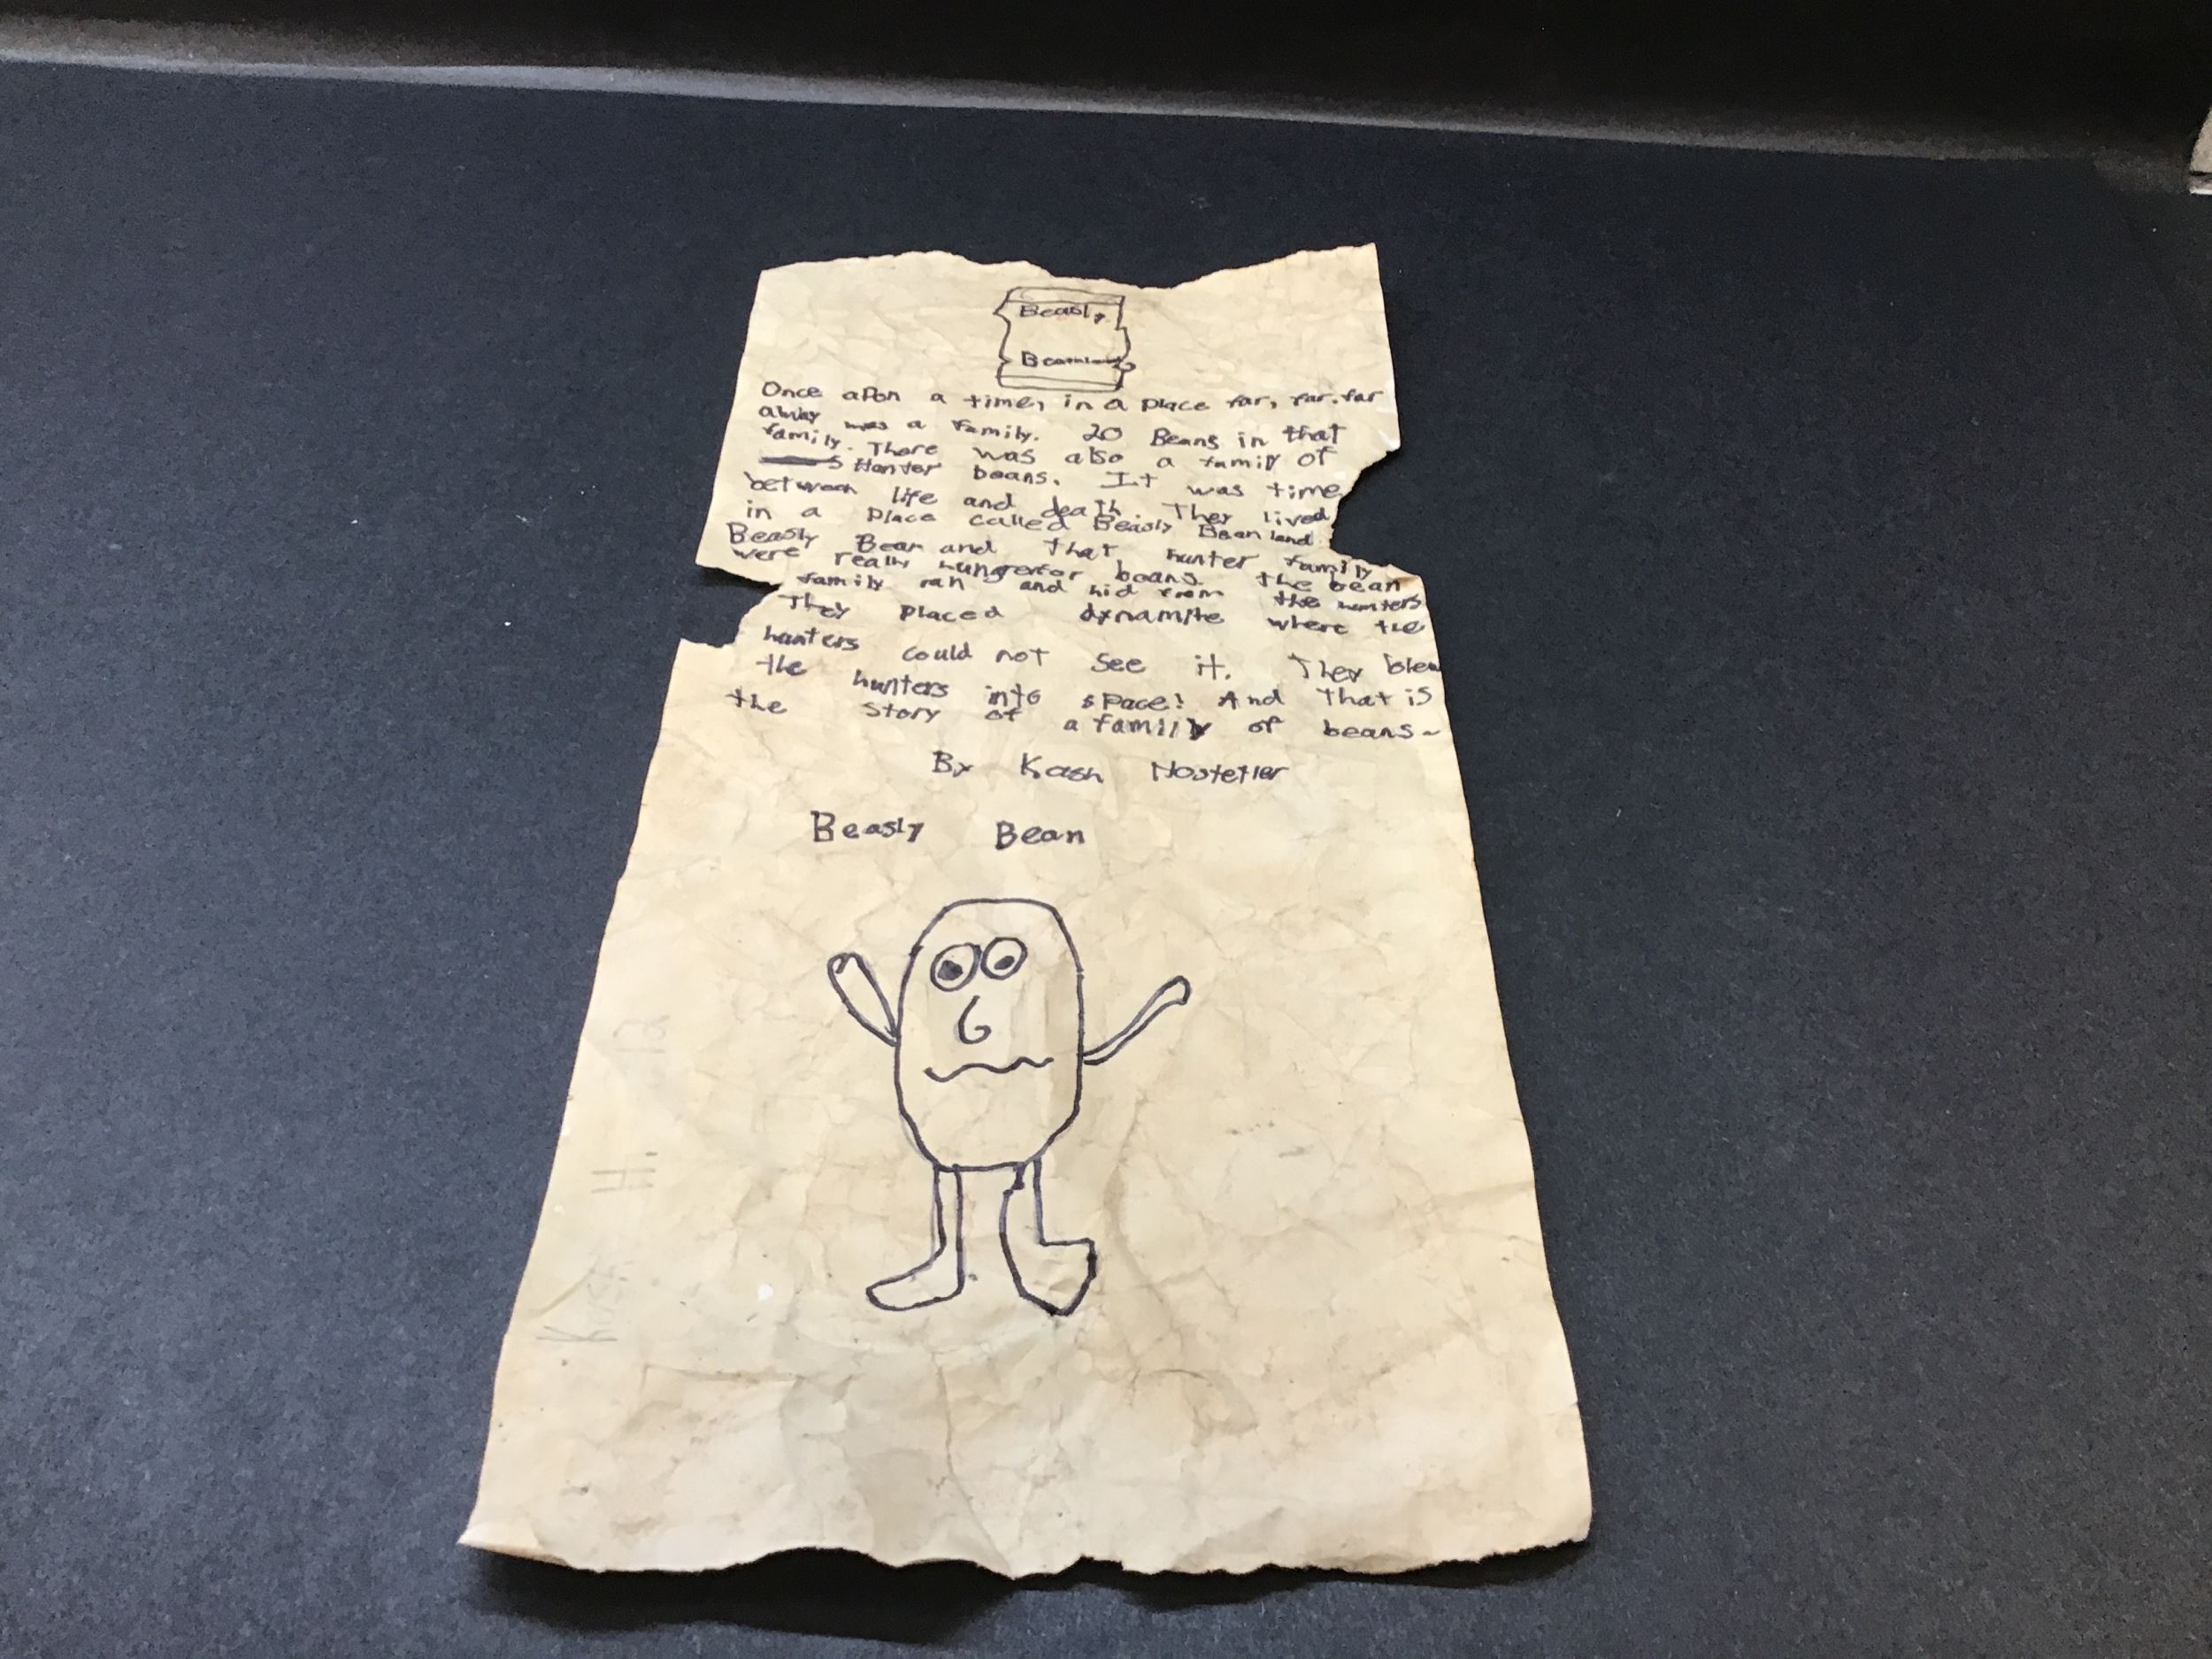 Beasly
Beanland
Once apon a time, in a place far, far. far
away was a family. 20 Beans in that
family. There was also a family of
s Hunter beans. It was time
between life and death. They lived
in a place called Beasly Bean land.
Beasly Bean and that hunter family
were really hunger for beans. the bean
family ran and hid from the hunters
They placed dynamite where the
hunters could not see it. They blew
the hunters into space! And that is
the story of a family of beans~
By Kash Hostetler
Beasly Bean
H.